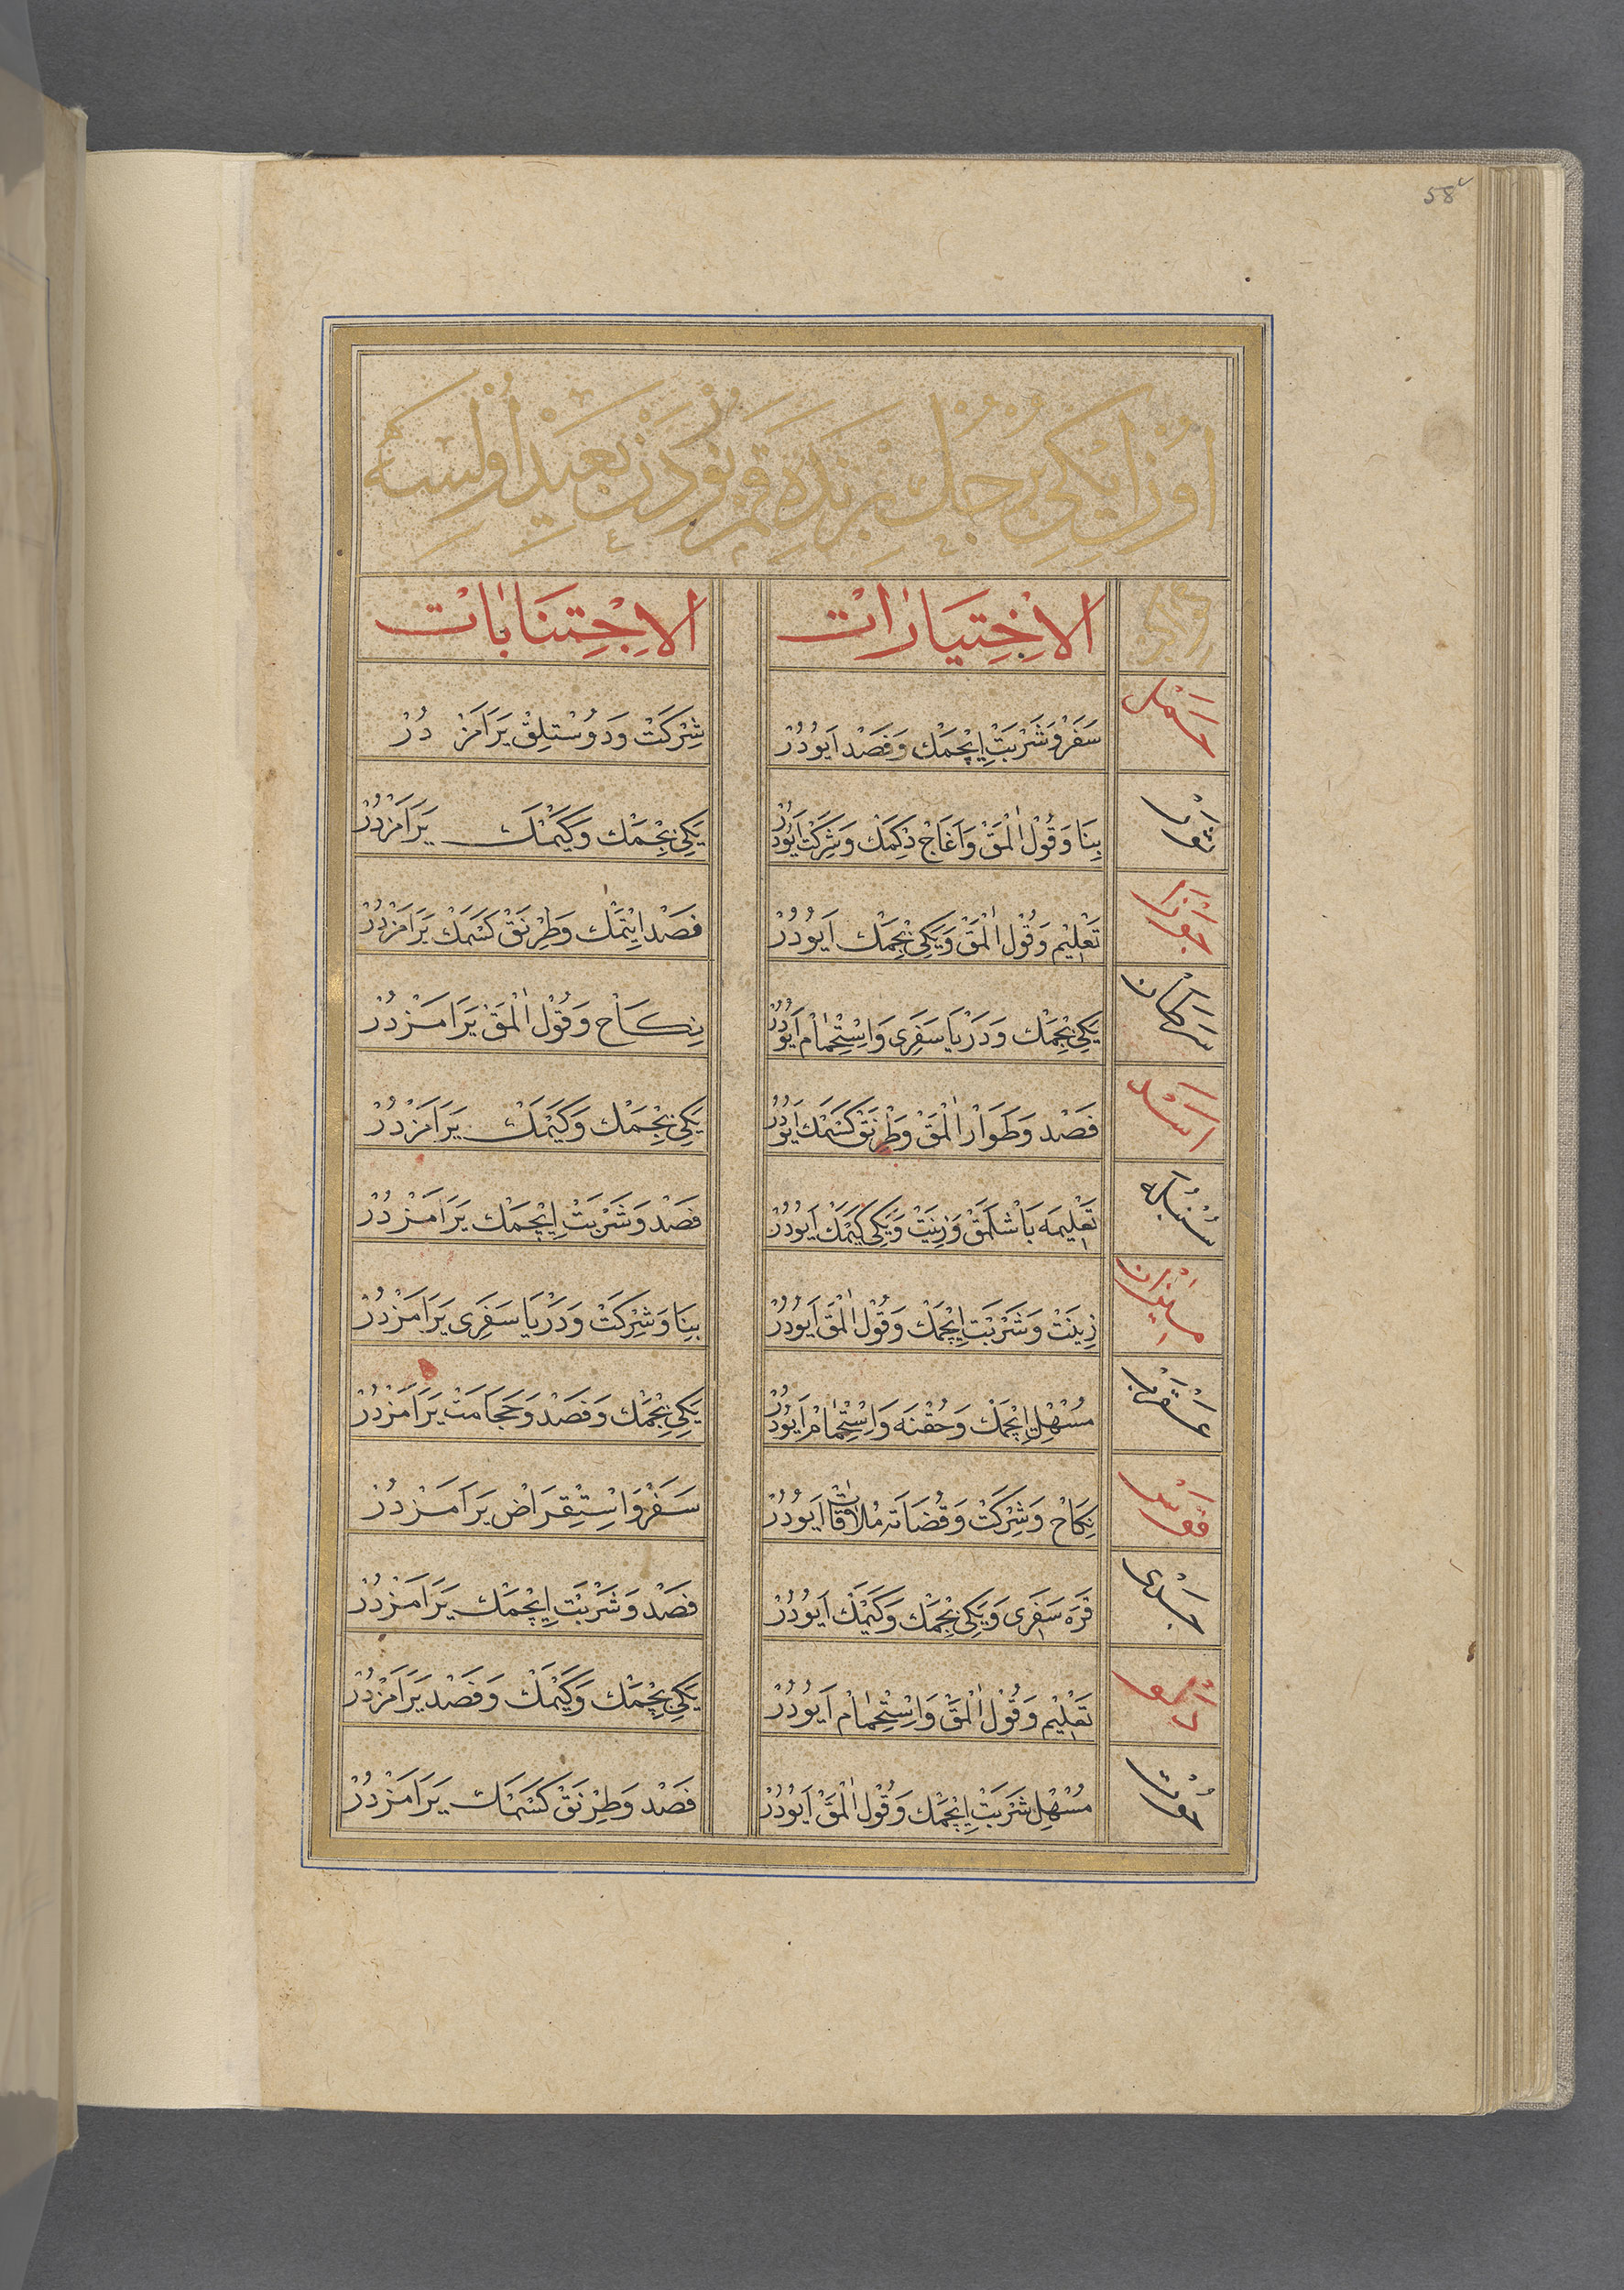 58
اُوْزْ اِيْكِي بُرْجُكْ بِرِنْدَه قَمَرْ بُونْدَنْ بَعِيدْ اُولِسَه
الاِخْتِيَارَاتْ الاِجْتِنَابَاتْ
حَمَلْ سَفَرْ وَشَرْبَتْ اِيْچْمَكْ وَفَصْد اَيُودُرْ شِرْكَتْ وَدُوسْتلِقْ يَرَامَزْ دُرْ
ثَوْرْ بِنَا وَقُوْل اَلْمَقْ وَاَغَاجْ دِكَمَكْ وَشِرْكَتْ اَيُودُرْ يَكِي بِچْمَكْ وَكَيْمَكْ يَرَامَزْدُرْ
جَوْزَا تَعْلِيْم وَقُوْل اَلْمَقْ وَيَكِي بِچْمَكْ اَيُودُرْ فَصْد اِيْتمَكْ وَطِرْنَقْ كَسْمَكْ يَرَامَزْدُرْ
سَرَطَانْ يَكِي بِچْمَكْ وَدَرْيَا سَفَرِي وَاِسْتِحْمَامْ اَيُودُرْ نِكَاحْ وَقُوْل اَلْمَقْ يَرَامَزْدُرْ
اَسَدْ فَصْد وَطَوَارْ اَلْمَقْ وَطِرْنَقْ كَسْمَكْ اَيُودُرْ يَكِي بِچْمَكْ وَكَيْمَكْ يَرَامَزْدُرْ
سُنْبُلَه تَعْلِيمَه بَاشْلَمَقْ وَزِينَتْ وَيَكِي كَيْمَكْ اَيُودُرْ فَصْد وَشَرْبَتْ اِيْچْمَكْ يَرَامَزْدُرْ
مِيزَانْ زِينَتْ وَشَرْبَتْ اِيْچْمَكْ وَقُوْل اَلْمَقْ اَيُودُرْ بِنَا وَشِرْكَتْ وَدَرْيَا سَفَرِي يَرَامَزْدُرْ
عَقْرَبْ مُسْهِل اِيْچْمَكْ وَحُقْنَه وَاِسْتِحْمَامْ اَيُودُرْ يَكِي بِچْمَكْ وَفَصْد وَحَجَامَتْ يَرَامَزْدُرْ
قَوْسْ نِكَاحْ وَشِرْكَتْ وَقُضَاتَه مُلَاقَاتْ اَيُودُرْ سَفَرْ وَاِسْتِقْرَاضْ يَرَامَزْدُرْ
جَدْي قَرَه سَفَرِي وَيَكِي بِچْمَكْ وَكَيْمَكْ اَيُودُرْ فَصْد وَشَرْبَتْ اِيْچْمَكْ يَرَامَزْدُرْ
دَلْو تَعْلِيْم وَقُوْل اَلْمَقْ وَاِسْتِحْمَامْ اَيُودُرْ يَكِي بِچْمَكْ وَكَيْمَكْ وَفَصْد يَرَامَزْدُرْ
حُوتْ مُسْهِل شَرْبَتْ اِيْچْمَكْ وَقُوْل اَلْمَقْ اَيُودُرْ فَصْد وَطِرْنَقْ كَسْمَكْ يَرَامَزْدُرْ